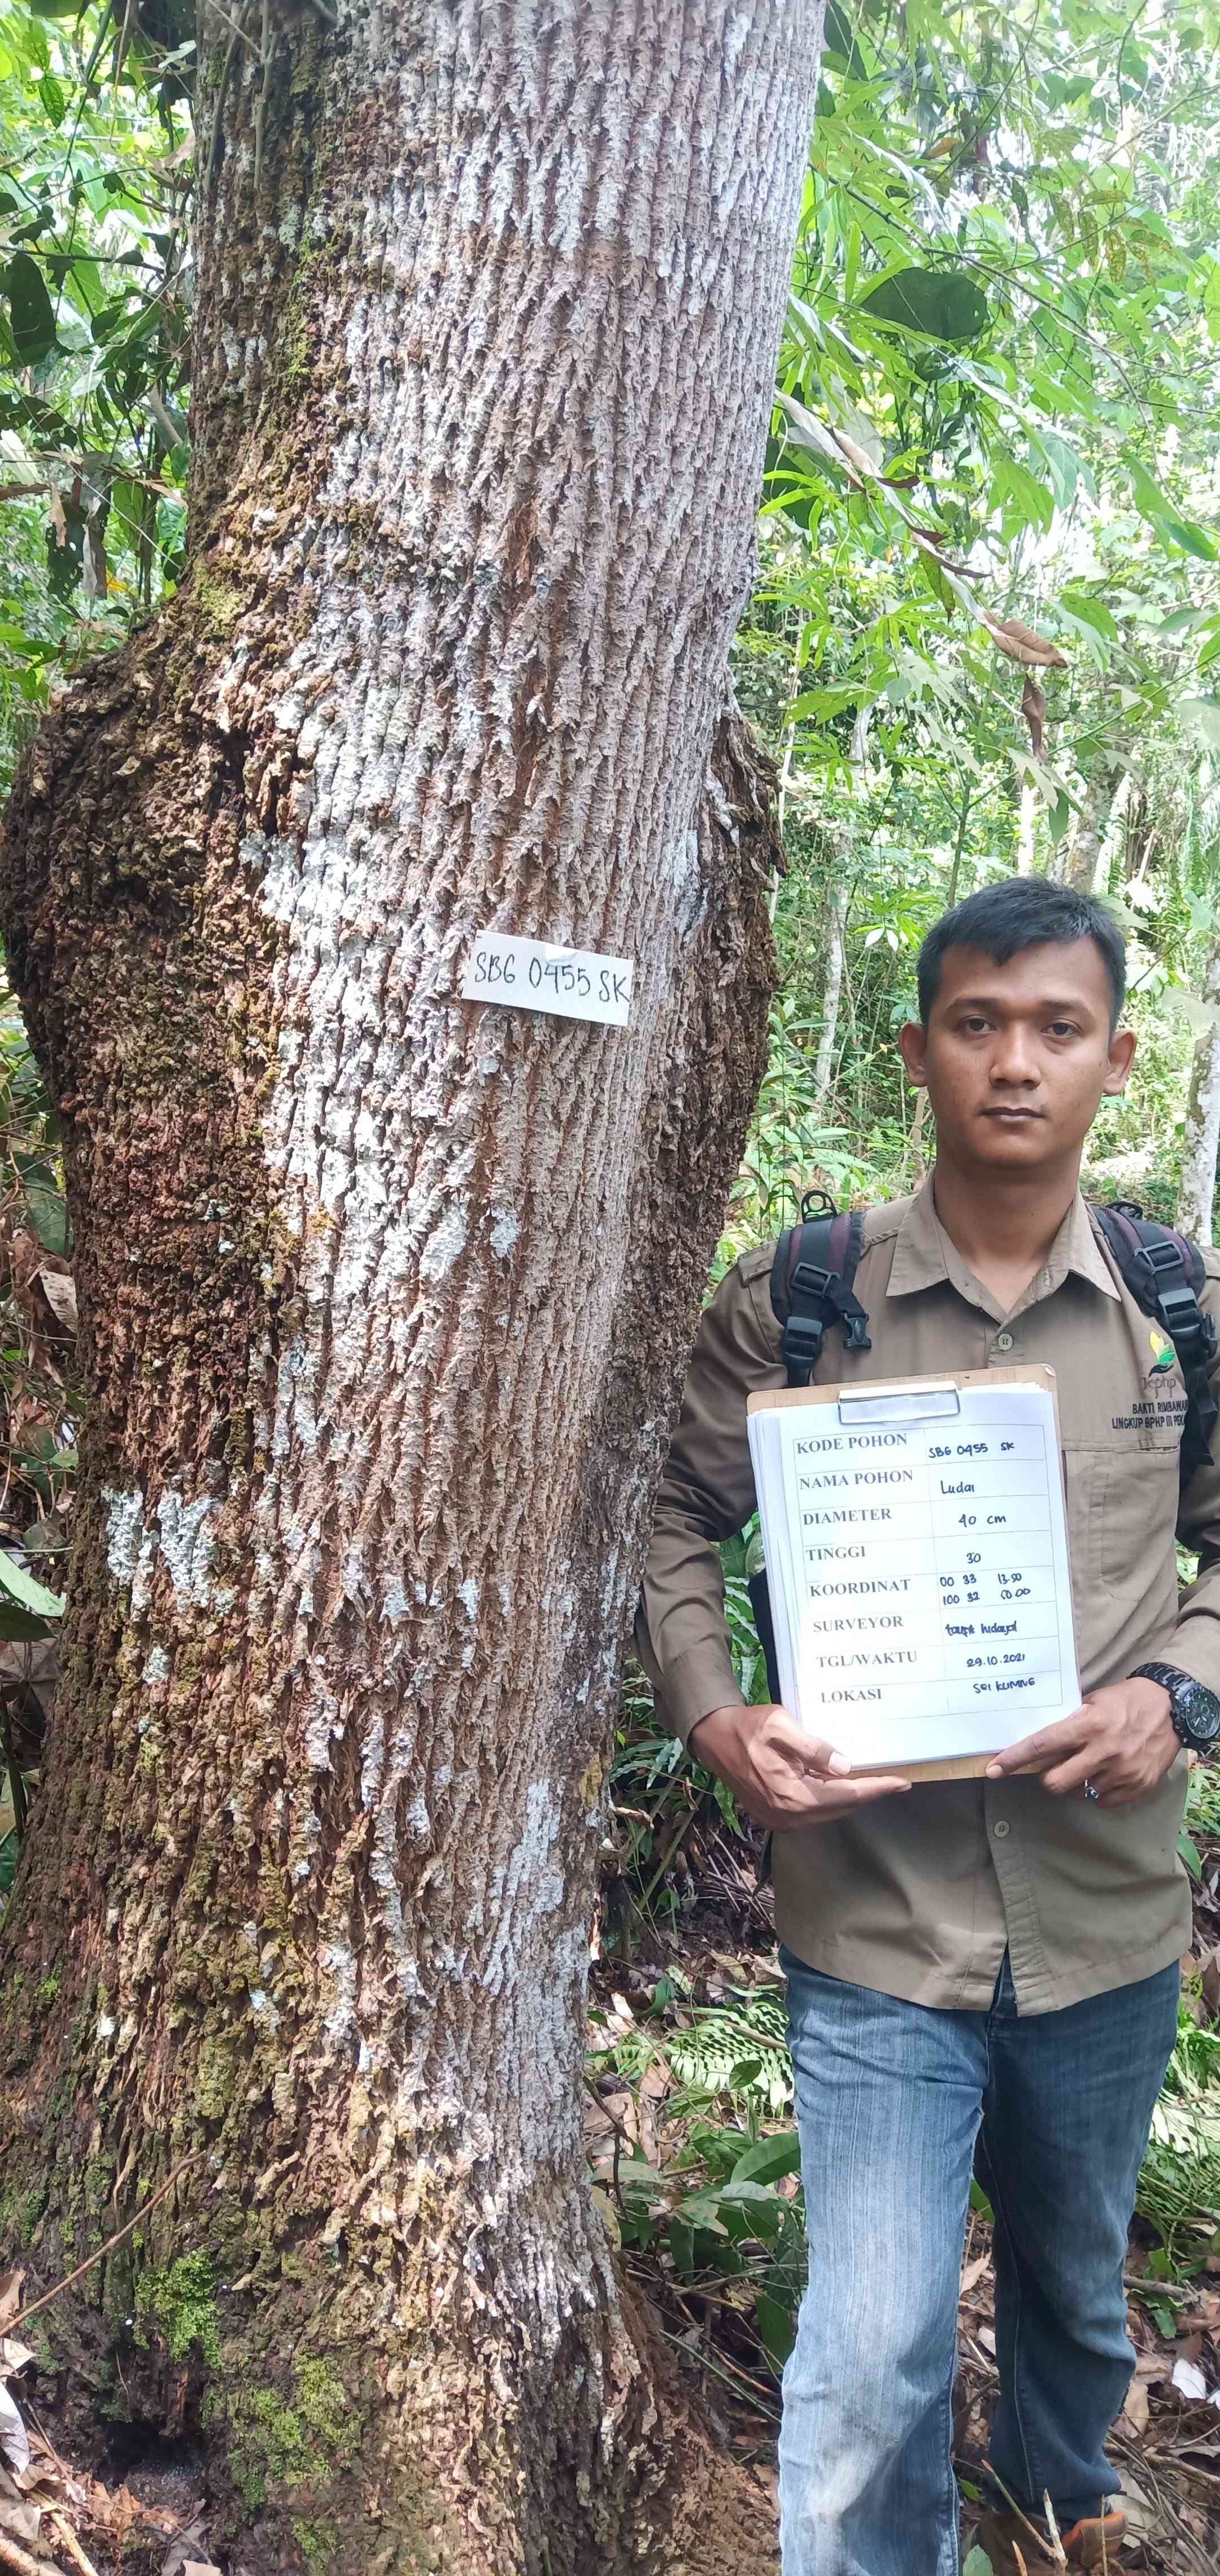 SBG 0455 SK
kphp
BAKTI RIMBAWAN
LINGKUP BPHP III
KODE POHON SBG 0455 SK
NAMA POHON Ludai
DIAMETER 40 cm
TINGGI 30
KOORDINAT 00 33 13.50
100 32 50.00
SURVEYOR hidayat
TGL/WAKTU 29.10.2021
LOKASI SEI KUNING